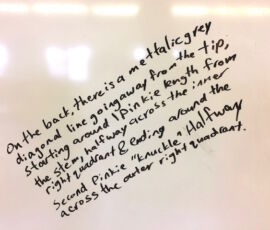 On the back, there is a mettalic grey
diagonal line going away from the tip,
starting around 1 Pinkie length from
the stem, halfway across the inner
right quadrant & ending around the
second Pinkie "knuckle" Halfway
across the outer right quadrant.